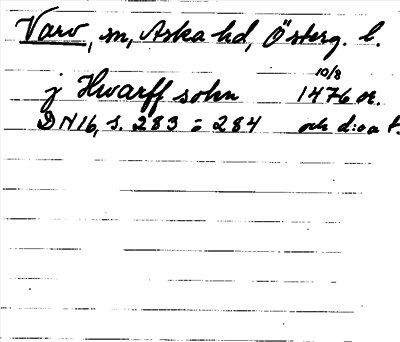 Varv, sn, Aska hd, Österg. l.
10/8
j Hwarff sokn 1476 or.
DN 16, s. 283 - 284 och d:o a t.